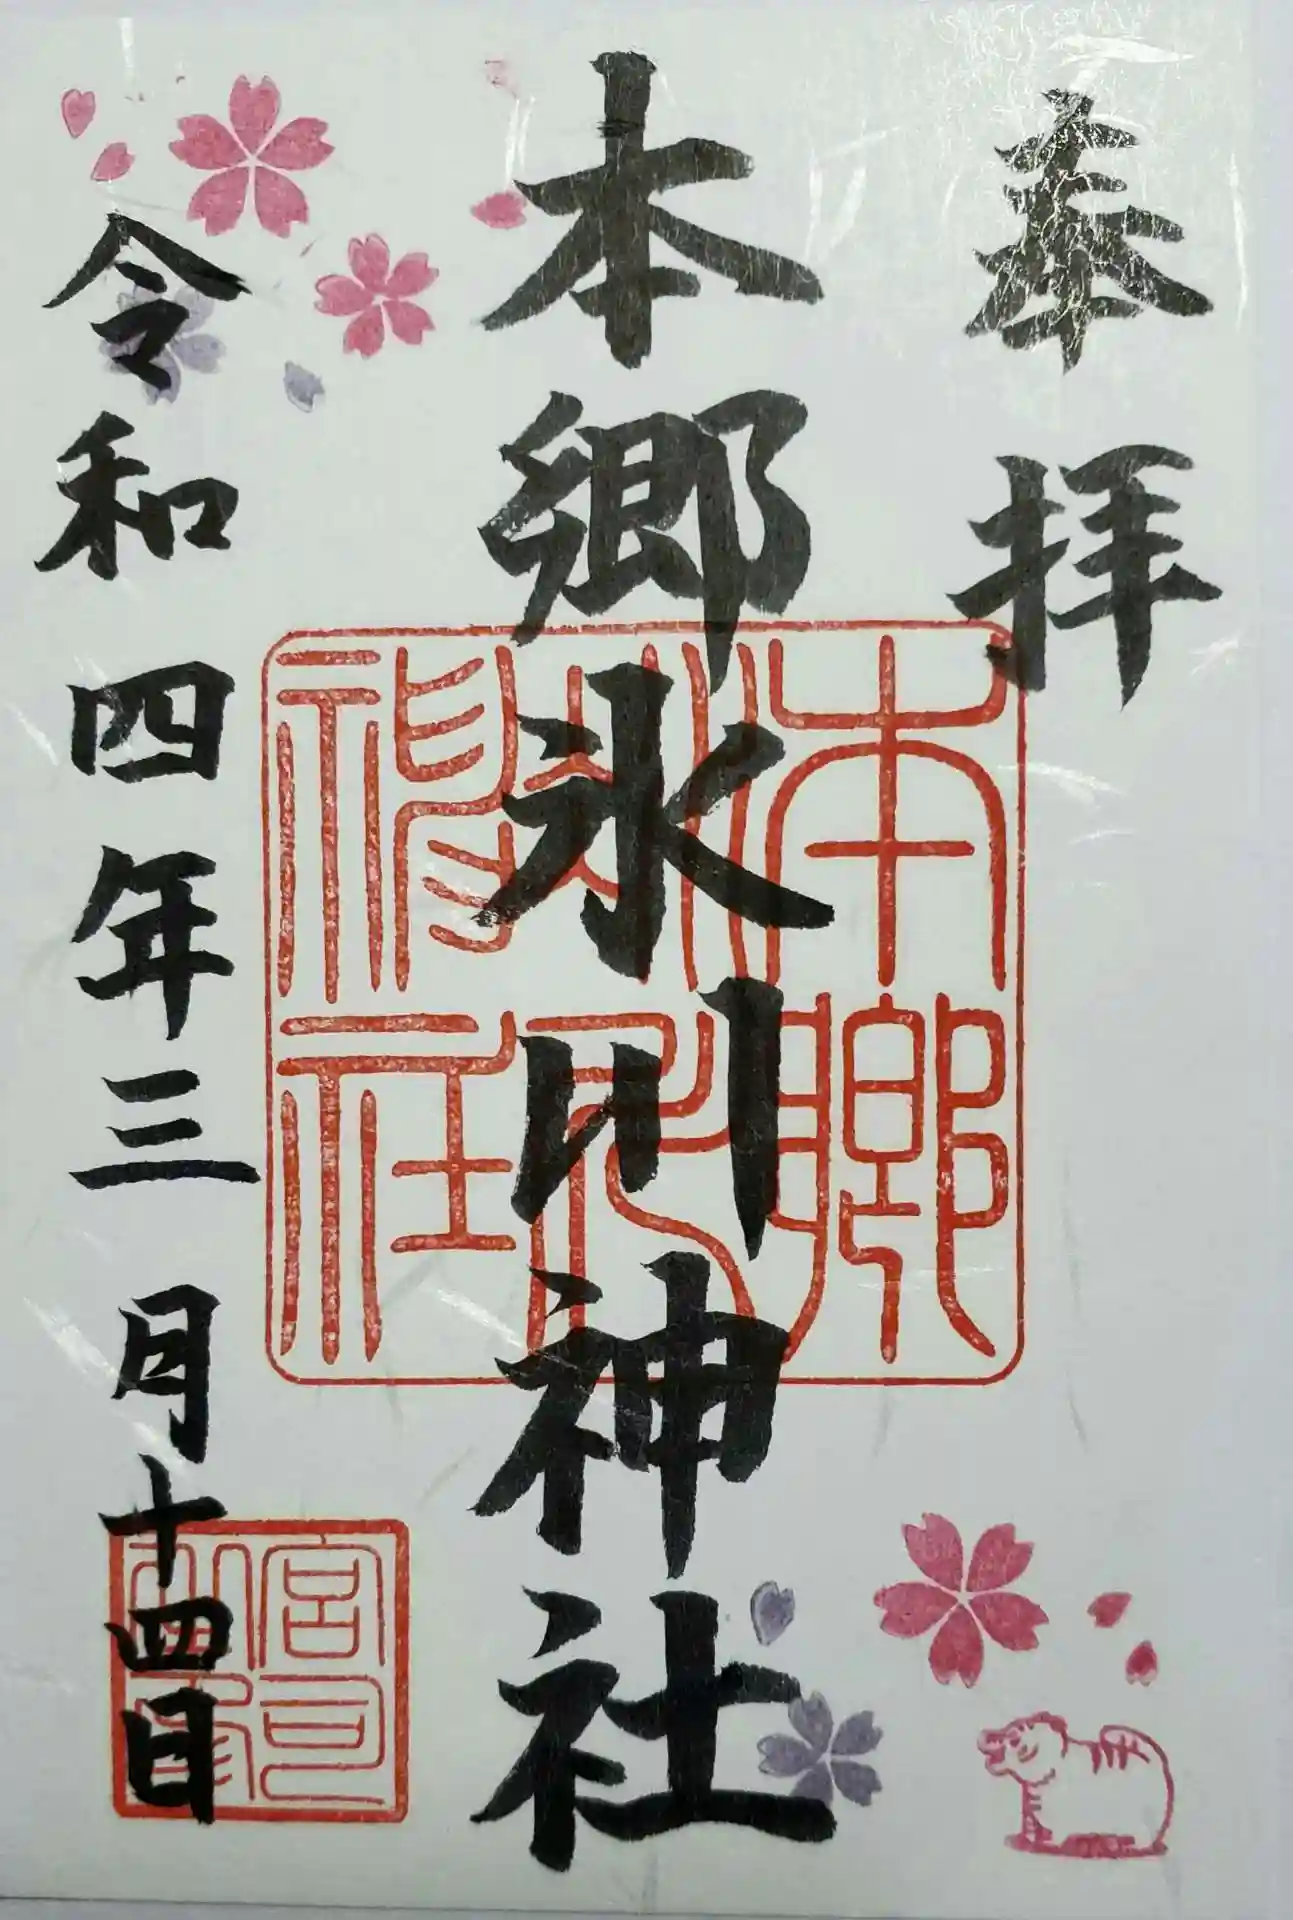 奉拝
本郷氷川神社
令和四年三月十四日
本郷
氷川
神社
宮司